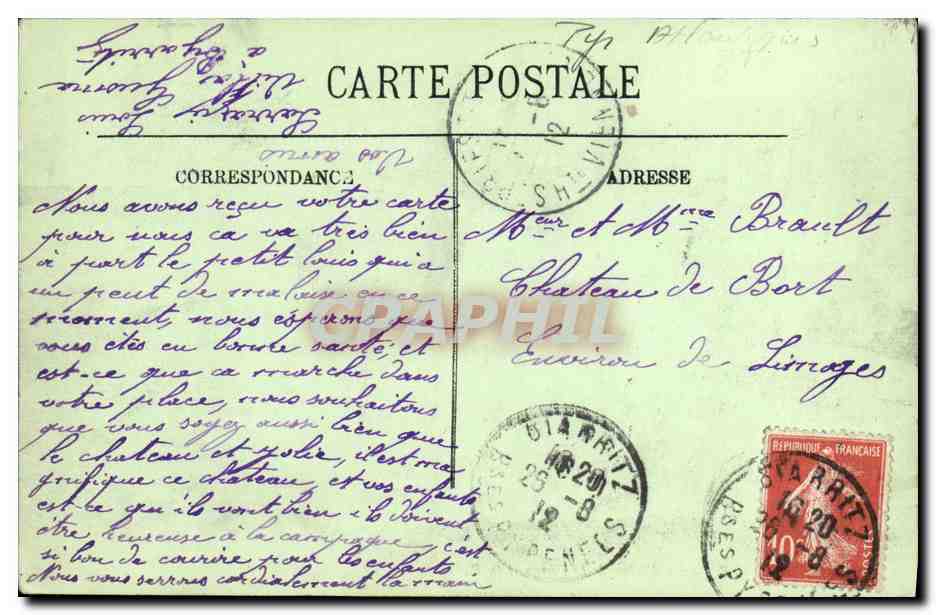 CARTE POSTALE
CORRESPONDANCE
ADRESSE
Nous avons reçu votre carte
pour nous ça va très bien
à part le petit louis qui a
un peut de malaise en ce
moment, nous éspérons que
vous étés en bonne santé, et
est-ce que ca marche dans
votre place, nous souhaitons
que vous soyez aussi bien que
le chateau et jolie, il est ma
gnifique ce chateau, et vos enfants
est-ce qu'ils vont bien ils doivent
être heureuse à la campagne, c'est
si bon de courire pour les enfants
Nous vous serrons cordialement la main
Vos amis
Louis
Villa
à Byarritz
Meur et Mme Brault
Chateau de Bort
Environ de Limoges
BIARRITZ
16 20
26 -8
12
BSES PYRENEES
-8
12
HTE VIENNE
REPUBLIQUE FRANÇAISE
10c
POSTES
BIARRITZ
16 20
26 -8
12
BSES P
CPAPHIL